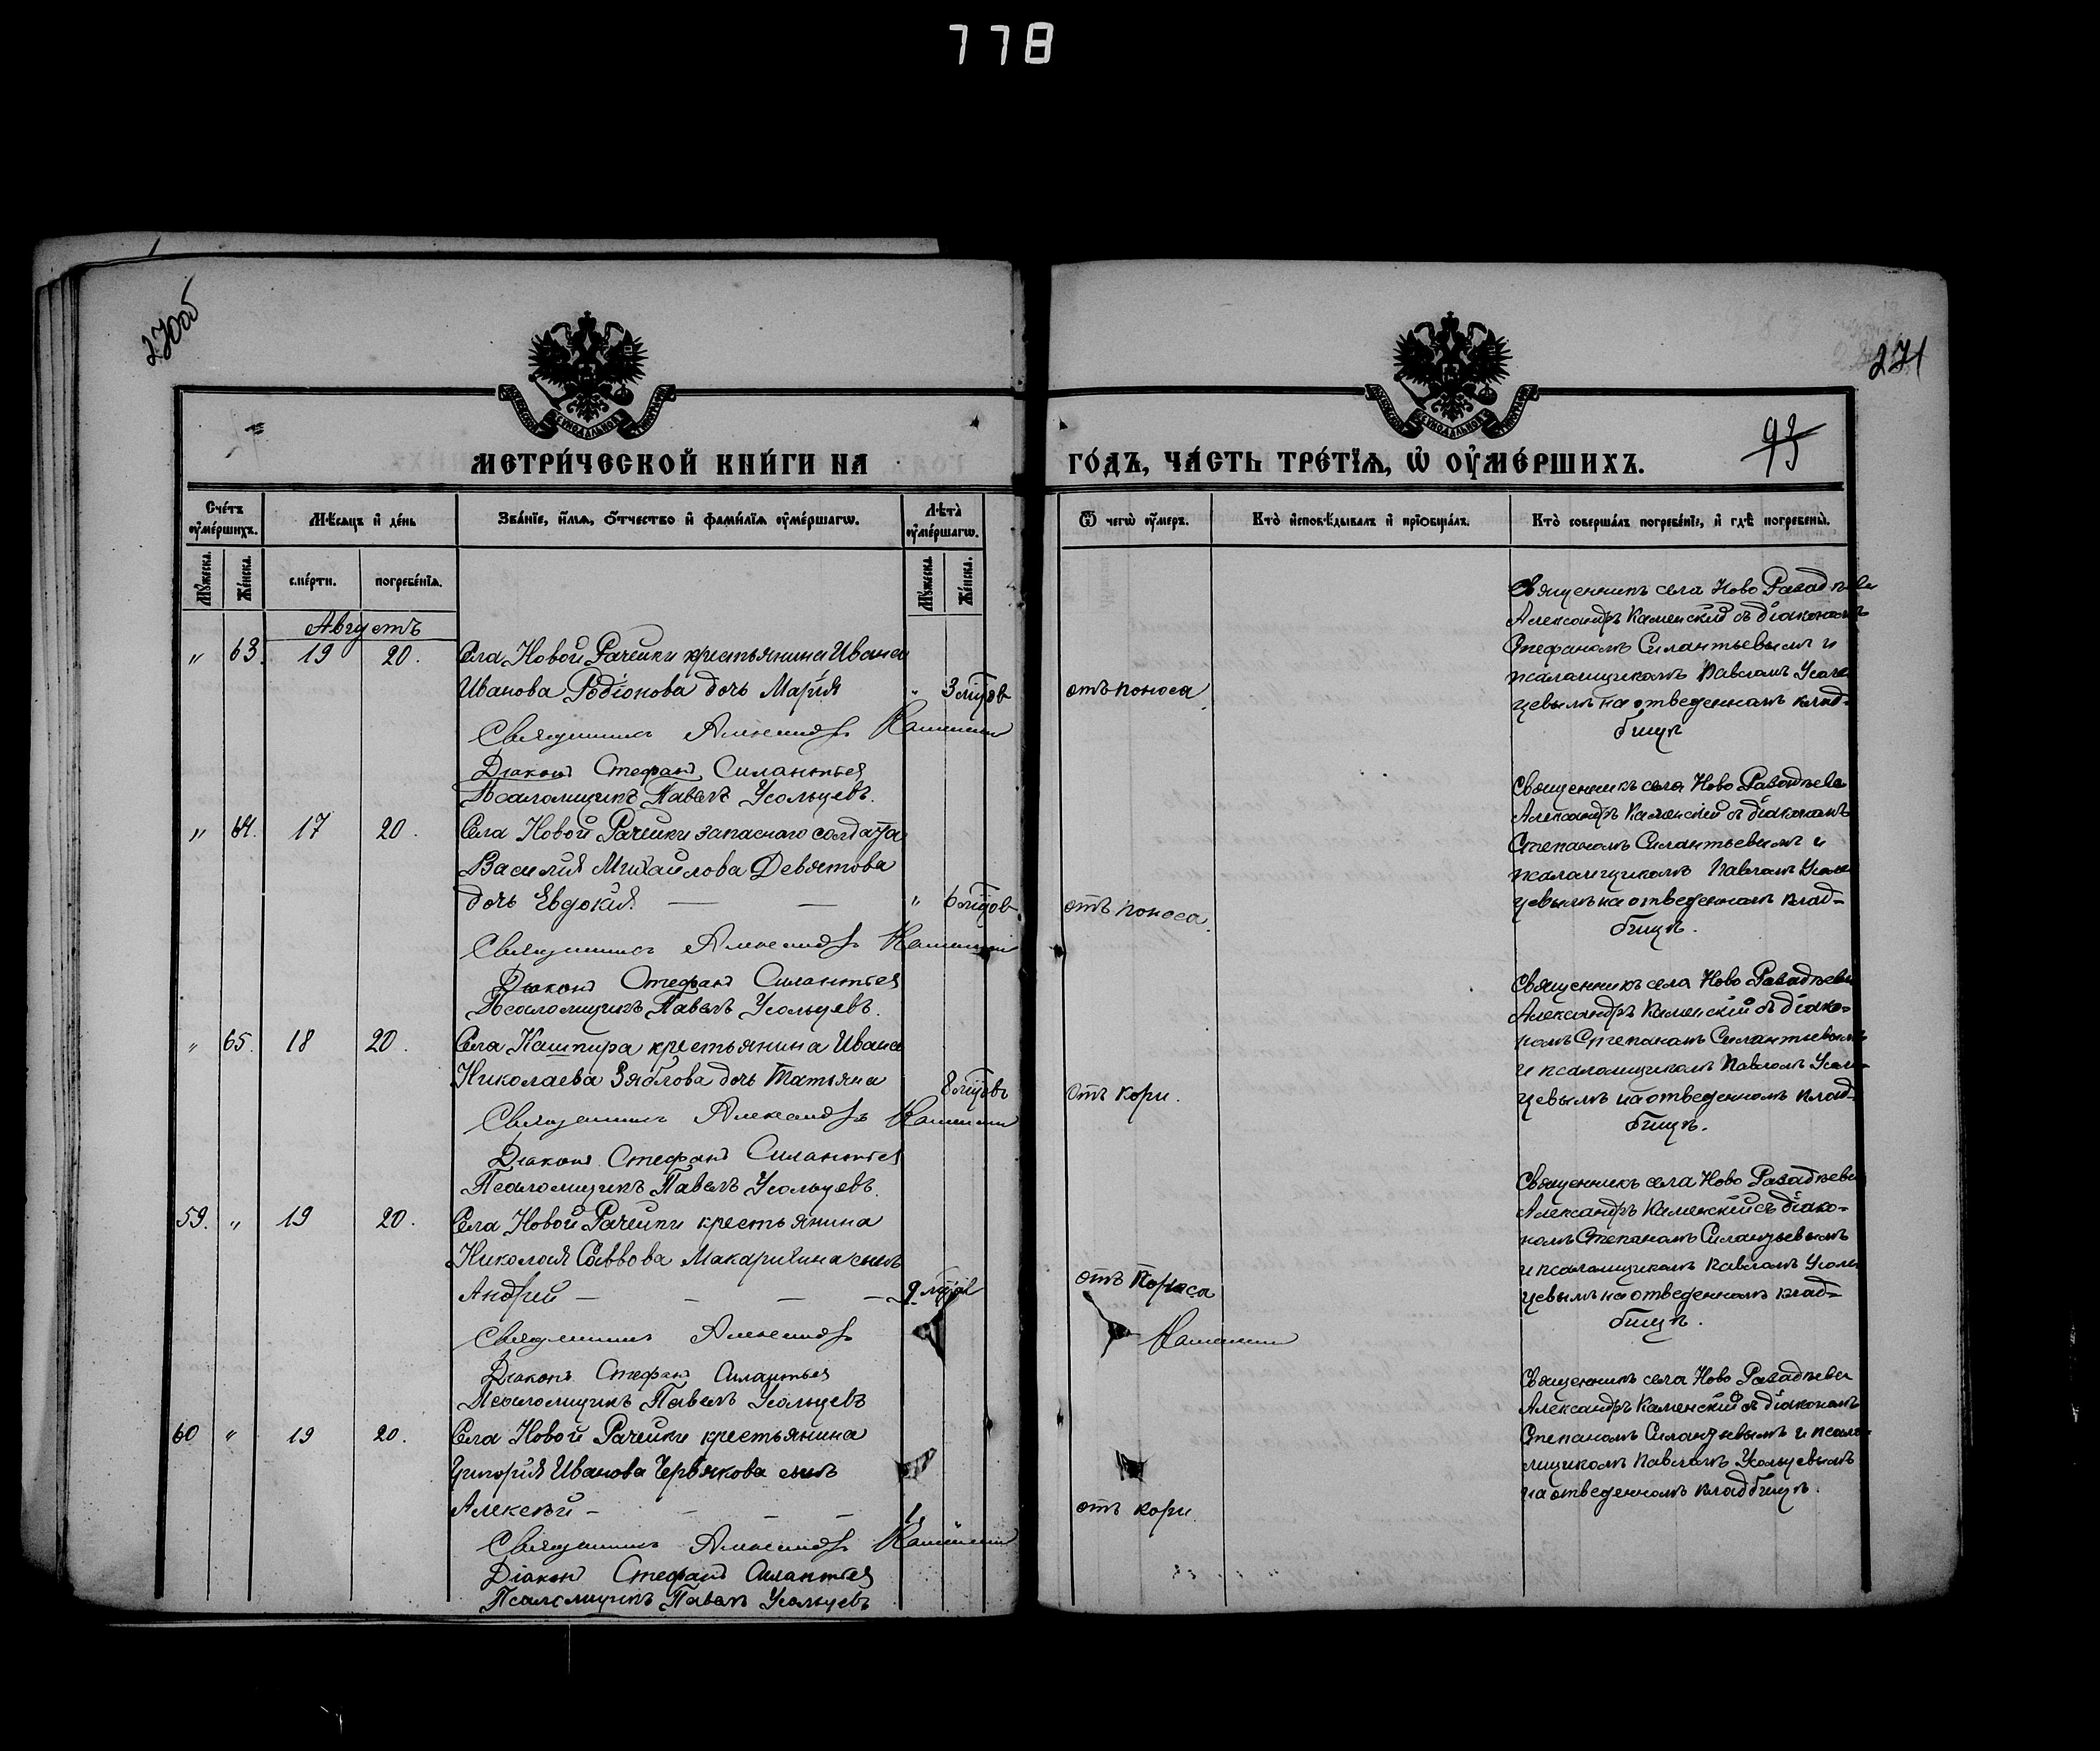 778
270об
271
93
МЕТРИ́ЧЕСКОЙ КНИ́ГИ НА
ГО́ДЪ, ЧА́СТЬ ТРЕ́ТЇѦ, Ѡ҆ ОУ҆МЕ́РШИХЪ.
Сче́тъ оу҆ме́ршихъ.
Мѣ́сяцъ и҆ де́нь
Зва́нїе, и҆́мѧ, ѻ҆́тчество и҆ фами́лїѧ оу҆ме́ршагѡ.
Лѣ́та̀ оу҆ме́ршагѡ.
Ѿ чегѡ̀ оу҆́меръ.
Кто̀ и҆сповѣ́дывалъ и҆ прїобща́лъ.
Кто̀ соверша́лъ погребе́нїе, и҆ гдѣ̀ погребены̀.
Мꙋ́жеска.
Же́нска.
сме́рти.
погребе́нїѧ.
Мꙋ́жеска.
Же́нска.
Августъ
„ 63. 19 20. Села Новой Рачейки крестьянина Ивана
Иванова Родіонова дочь Марія „ 3 мѣсяцовъ отъ поноса.
Священникъ Александръ Каменскій
Діаконъ Стефанъ Силантьев
Псаломщикъ Павелъ Усольцевъ.
Священникъ села Ново
Александръ Каменскій съ діакономъ
Стефаномъ Силантьевымъ и
псаломщикомъ Павломъ Усоль
цевымъ на отведенномъ клад-
бищѣ
„ 64. 17 20. Села Новой Рачейки запаснаго солдата
Василія Михайлова Девятова
дочь Евдокія — — „ 6 мѣсяцовъ отъ поноса.
Священникъ Александръ Каменскій
Діаконъ Стефанъ Силантьев
Псаломщикъ Павелъ Усольцевъ.
Священникъ села Ново
Александръ Каменскій съ діакономъ
Степаномъ Силантьевымъ и
псаломщикомъ Павломъ Усоль
цевымъ на отведенномъ клад-
бищѣ.
„ 65. 18 20. Села Кашпира крестьянина Ивана
Николаева Зяблова дочь Татьяна 8 мѣсяцовъ отъ кори.
Священникъ Александръ Каменскій
Діаконъ Стефанъ Силантьев
Псаломщикъ Павелъ Усольцевъ.
Священникъ села Ново
Александръ Каменскій съ діако-
номъ Степаномъ Силантьевымъ
и псаломщикомъ Павломъ Усоль-
цевымъ на отведенномъ клад-
бищѣ.
59. „ 19 20. Села Новой Рачейки крестьянина
Николая Саввова Макарихина сынъ
Андрей — — — — 9 отъ поноса
Священникъ Александръ Каменскій
Діаконъ Стефанъ Силантьев
Псаломщикъ Павелъ Усольцевъ
Священникъ села Ново
Александръ Каменскій съ діако-
номъ Степаномъ Силантьевымъ
и псаломщикомъ Павломъ Усоль
цевымъ на отведенномъ клад-
бищѣ.
60 „ 19 20. Села Новой Рачейки крестьянина
Григорія Иванова Червякова сынъ
Алексѣй — — — — 1 отъ кори.
Священникъ Александръ Каменскій
Діаконъ Стефанъ Силантьев
Псаломщикъ Павелъ Усольцевъ
Священникъ села Ново
Александръ Каменскій съ діакономъ
Степаномъ Силантьевымъ и псало-
мщикомъ Павломъ Усольцевымъ
на отведенномъ кладбищѣ.